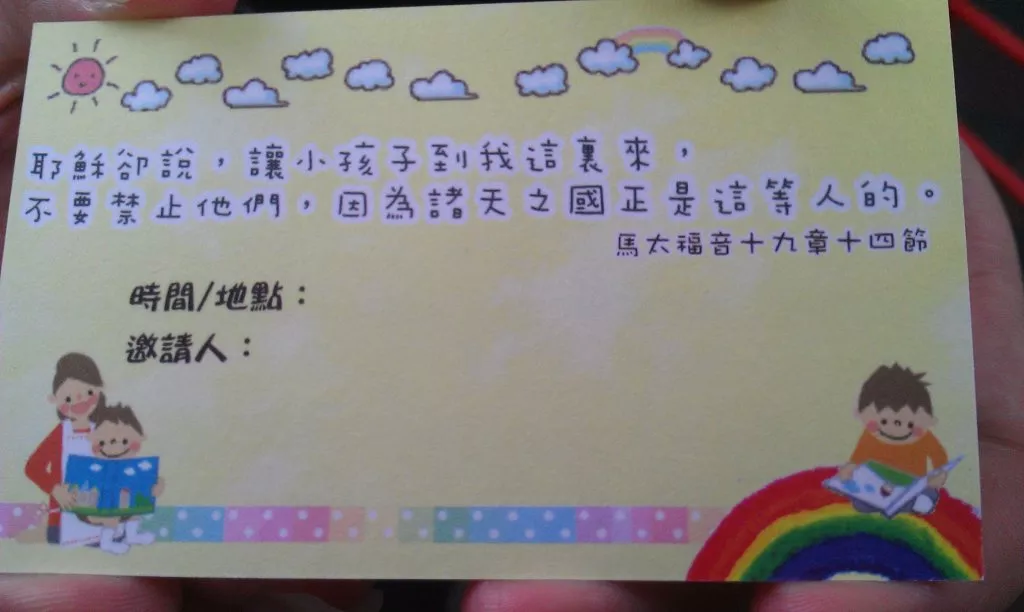 耶穌卻說，讓小孩子到我這裏來，
不要禁止他們，因為諸天之國正是這等人的。
馬太福音十九章十四節
時間/地點：
邀請人：